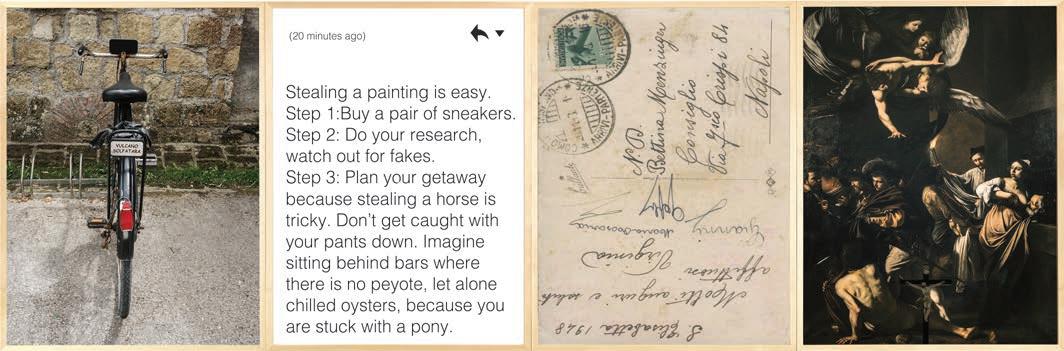 VULCANO
SOLFATARA
(20 minutes ago)
Stealing a painting is easy.
Step 1:Buy a pair of sneakers.
Step 2: Do your research,
watch out for fakes.
Step 3: Plan your getaway
because stealing a horse is
tricky. Don't get caught with
your pants down. Imagine
sitting behind bars where
there is no peyote, let alone
chilled oysters, because you
are stuck with a pony.
N.D.
Bettina Menzinger
Consiglio
Via Crispi 84
Napoli
S. Elisabetta 1948
Molti auguri e saluti
affettuosi Virginia
Gianni